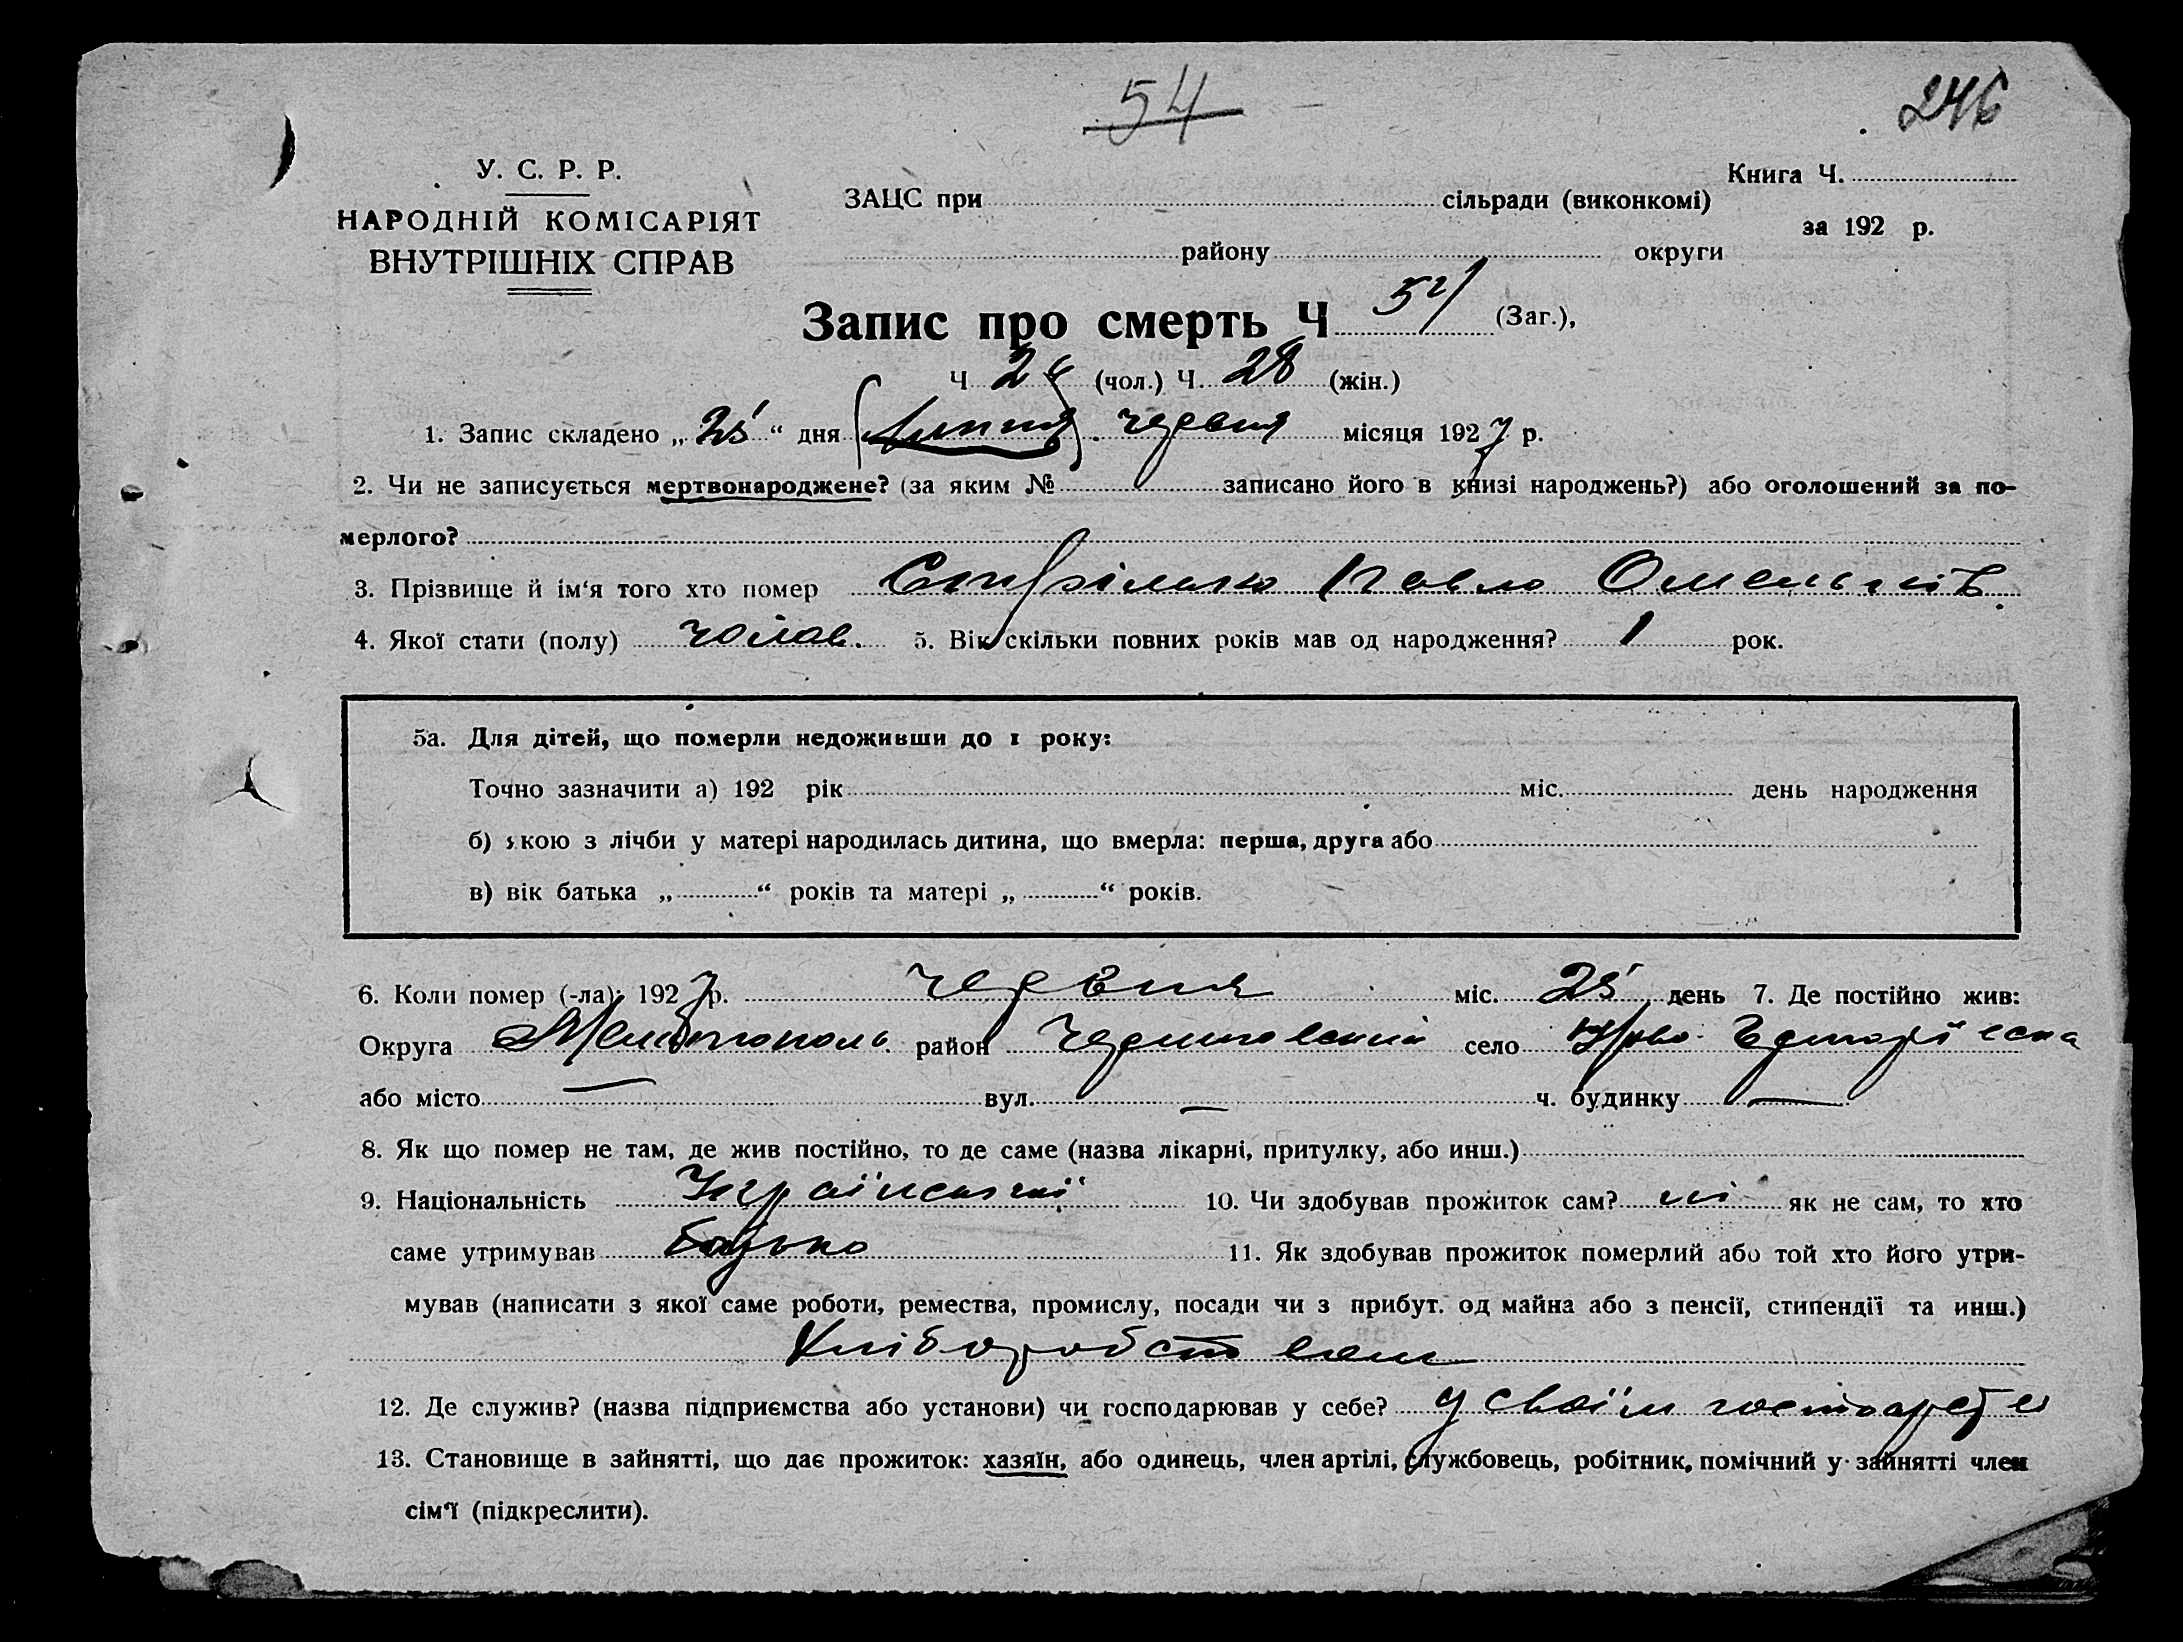 54
246
У. С. Р. Р.
НАРОДНІЙ КОМІСАРІЯТ
ВНУТРІШНІХ СПРАВ
Книга Ч.
ЗАЦС при сільради (виконкомі)
за 192 р.
району округи
Запис про смерть Ч 54 (Заг.),
Ч (чол.) Ч. 28 (жін.)
1. Запис складено „25“ дня (Липня) червня місяця 1927 р.
2. Чи не записується мертвонароджене? (за яким № записано його в книзі народжень?) або оголошений за по-
мерлого?
3. Прізвище й ім‘я того хто номер Павло
4. Якої стати (полу) чолов. 5. Вік скільки повних років мав од народження? 1 рок.
5а. Для дітей, що померли недоживши до 1 року:
Точно зазначити а) 192 рік міс. день народження
б) якою з лічби у матері народилась дитина, що вмерла: перша, друга або
в) вік батька „ “ років та матері „ “ років.
6. Коли помер (-ла): 1927 р. червня міс. 25 день 7. Де постійно жив:
Округа Мелітополь район село Ново-
або місто — вул. — ч. будинку —
8. Як що помер не там, де жив постійно, то де саме (назва лікарні, притулку, або инш.)
9. Національність 10. Чи здобував прожиток сам? ні як не сам, то хто
саме утримував Батько 11. Як здобував прожиток померлий або той хто його утри-
мував (написати з якої саме роботи, ремества, промислу, посади чи з прибут. од майна або з пенсії, стипендії та инш.)
Хліборобством
12. Де служив? (назва підприємства або установи) чи господарював у себе? у своїм
13. Становище в зайнятті, що дає прожиток: хазяїн, або одинець, член артілі, службовець, робітник, помічний у зайнятті член
сім‘ї (підкреслити).